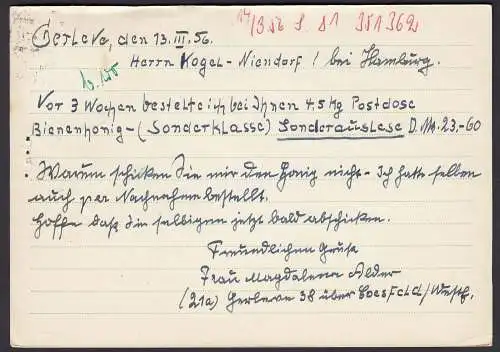 14/3 56 S 81 381362
Gerleve, den 13. III. 56.
Herrn Kogel - Niendorf! bei Hamburg.
Vor 3 Wochen bestelte ich bei Ihnen 4,5 Kg Postdose
Bienenhonig - (Sonderklasse) Sonderauslese D.M. 23.-60
Warum schicken Sie mir den Honig nicht - Ich hatte selben
auch per Nachnahme bestellt.
Hoffe daß Sie selbigen jetzt bald abschicken.
Freundlichen Gruss
Frau Magdalena Alder
(21a) Gerleve 38 über Coesfeld/Westf.